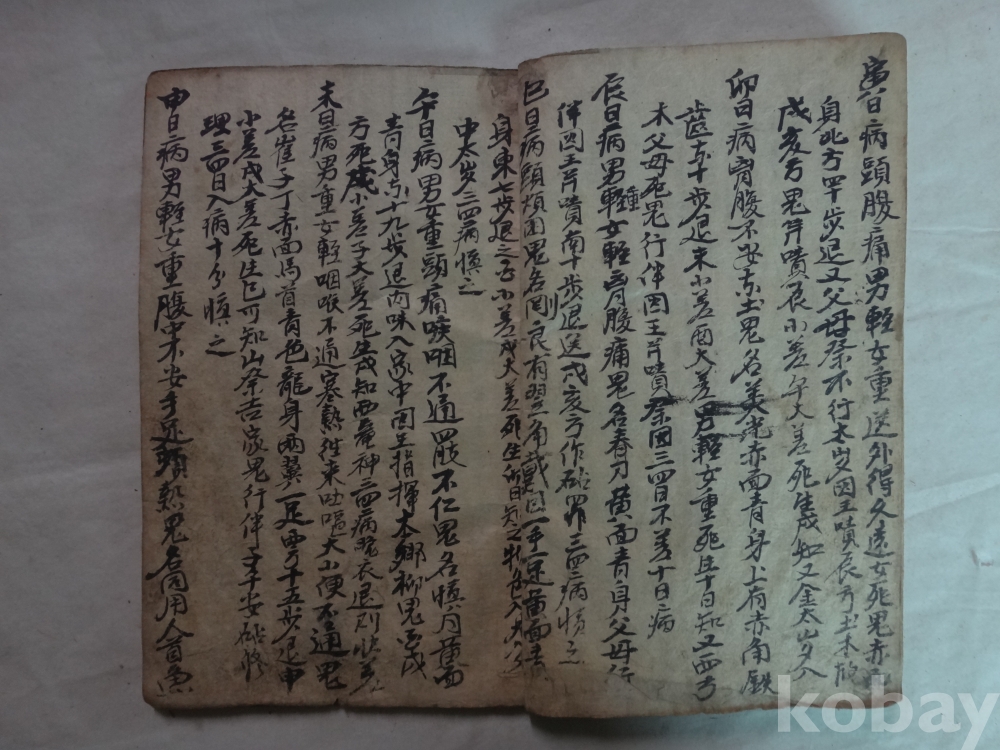 寅日病頭腹痛男輕女重送外得久遠女死鬼赤面
身北方四十步退又父母祭不行太歲因王嗔辰方土木
戌亥方鬼笇嗔辰小差午大差死生戌知又金太山歲入
卯日病胷腹不安東土鬼名美光赤面青身上有赤角
齒東十步退未小差酉大差男輕女重死生十日知又四方
木父母死鬼行伴因王笇嗔祭因三四日不差十日病
辰日病男輕女輕重胷腹痛鬼名春刀黃面青身父母行
伴因王笇嗔南十步退送戌亥方作 三四病愼之
巳日病頭煩困鬼名刚剛良有翌角戴 一手一足黃面青
身東七步退之吉小差戌大差死生所日知之 色入
中太炎三四病愼之
午日病男女重頭痛喉咽不通四肢不仁鬼名恒八月黃面
青身東十九步退肉味入家中因王指揮本鄉柳鬼
方死 小差子大差死生戌知西 神三四病 退則
未日病男重女輕咽喉不通寒熱往來吐嘔大小便不通鬼
名崔子丁赤面馬首青色龍身兩翼一足西方十五步退申
小差戌大差死生巳可知山祭吉家鬼行伴子午安
理三四日入病十分愼之
申日病男輕女重腹中不安手足頭熱鬼名同用人首
kobay